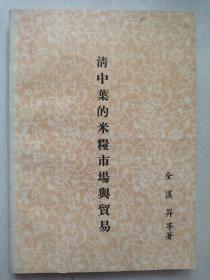 清中葉的米糧市場與貿易
全漢昇等著